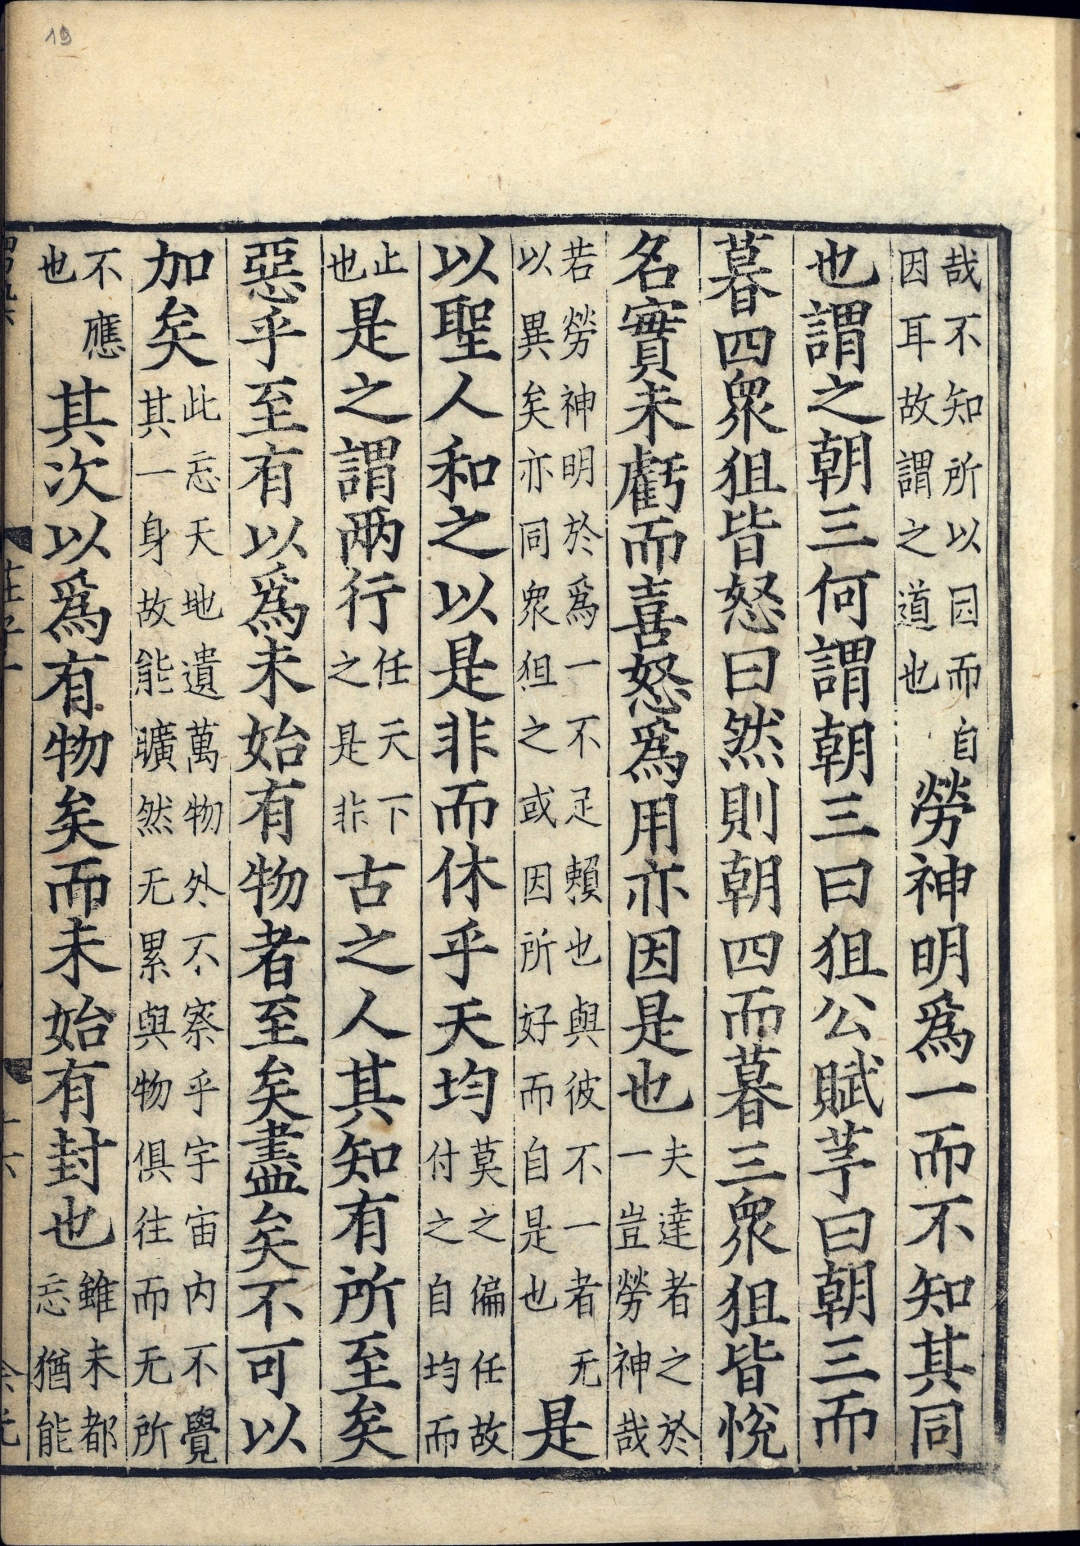 19
哉不知所以因而自因耳故謂之道也勞神明爲一而不知其同
也謂之朝三何謂朝三曰狙公賦芧曰朝三而
暮四衆狙皆怒曰然則朝四而暮三衆狙皆悅
名實未虧而喜怒爲用亦因是也夫達者之於一豈勞神哉
若勞神明於爲一不足賴也與彼不一者无以異矣亦同衆狙之或因所好而自是也是
以聖人和之以是非而休乎天均莫之偏任故付之自均而
止也是之謂兩行任天下之是非古之人其知有所至矣
惡乎至有以爲未始有物者至矣盡矣不可以
加矣此忘天地遺萬物外不察乎宇宙內不覺其一身故能曠然无累與物俱往而无所
不應也其次以爲有物矣而未始有封也雖未都忘猶能